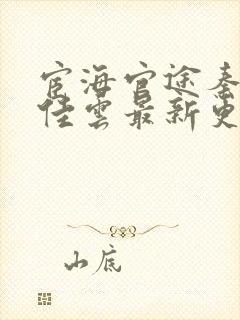 宦海官途秦
佳云最新更
山底